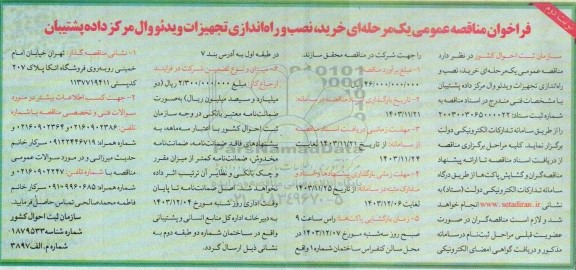 نوبت دوم
فراخوان مناقصه عمومی یک مرحله‌ای خرید، نصب و راه‌اندازی تجهیزات ویدئو وال مرکز داده پشتیبان
سازمان ثبت احوال کشور در نظر دارد
مناقصه عمومی یک مرحله‌ای خرید، نصب و
راه‌اندازی تجهیزات ویدئو وال مرکز داده پشتیبان
با مشخصات فنی مندرج در اسناد مناقصه به
شماره ثبت ستاد:
را از طریق سامانه تدارکات الکترونیکی دولت
برگزار نماید. کلیه مراحل برگزاری مناقصه
از دریافت اسناد مناقصه تا ارائه پیشنهاد
مناقصه‌گران و گشایش پاکت‌ها از طریق درگاه
سامانه تدارکات الکترونیکی دولت (ستاد) به
نشانی www.setadiran.ir انجام خواهد
شد و لازم است مناقصه‌گران در صورت
عضویت قبلی مراحل ثبت‌نام در سامانه
مذکور و دریافت گواهی امضای الکترونیکی
را جهت شرکت در مناقصه محقق سازند.
۱- مبلغ برآورد مناقصه:
۲- تاریخ بارگذاری مناقصه در سامانه:
۱۴۰۳/۱۱/۲۱
۳- مهلت زمانی دریافت اسناد مناقصه
از سامانه: از تاریخ ۱۴۰۳/۱۱/۲۱ لغایت
۱۴۰۳/۱۱/۲۴
۴- مهلت زمانی بارگذاری پیشنهادها و اسناد
مناقصه در سامانه: از تاریخ ۱۴۰۳/۱۱/۲۵
لغایت ۱۴۰۳/۱۲/۰۶
۵- زمان بازگشایی پاکت‌ها: راس ساعت ۹
صبح روز سه‌شنبه مورخ ۱۴۰۳/۱۲/۰۷ در
محل سالن کنفرانس ساختمان شماره ۱ واقع
در طبقه اول به آدرس بند ۷
۶- میزان و نوع تضمین شرکت در فرایند
ارجاع کار: مبلغ ۲/۳۰۰/۰۰۰/۰۰۰ ریال (دو
میلیارد و سیصد میلیون ریال) به‌صورت
ضمانتنامه معتبر بانکی و در وجه سازمان
ثبت احوال کشور با اعتبار سه‌ماهه. به
پیشنهادهای فاقد ضمانت‌نامه، ضمانت‌نامه
مخدوش، ضمانت‌نامه کمتر از میزان مقرر
و چک بانکی و نظایر آن ترتیب اثر داده
نخواهد شد. اصل ضمانت‌نامه تا پایان
وقت اداری روز شنبه مورخ ۱۴۰۳/۱۲/۰۴
به دبیرخانه اداره کل منابع انسانی و پشتیبانی
واقع در ساختمان شماره دو طبقه دوم به
نشانی ذیل ارسال گردد.
۷- نشانی مناقصه گذار: تهران خیابان امام
خمینی روبه‌روی فروشگاه اتکا پلاک ۲۰۷
کدپستی ۱۱۳۷۷۱۹۴۱۱
۸- جهت کسب اطلاعات بیشتر در مورد
سوالات فنی و تخصصی مناقصه با شماره
تلفن: ۰۲۱۶۰۹۰۲۳۸۶ و ۰۲۱۶۰۹۰۲۳۶۴
شماره همراه ۰۹۱۲۲۴۴۶۷۱۹ سرکار خانم
حدیث میرزائی و در مورد سوالات عمومی
مناقصه با شماره تلفن: ۰۲۱۶۰۹۰۲۲۴۷
شماره همراه ۰۹۱۰۹۹۶۰۶۸۵ سرکار خانم
فاطمه محمدصالحی تماس حاصل فرمایید.
سازمان ثبت احوال کشور
شماره شناسه ۱۸۷۹۵۳۳
شماره م.الف ۳۸۹۷